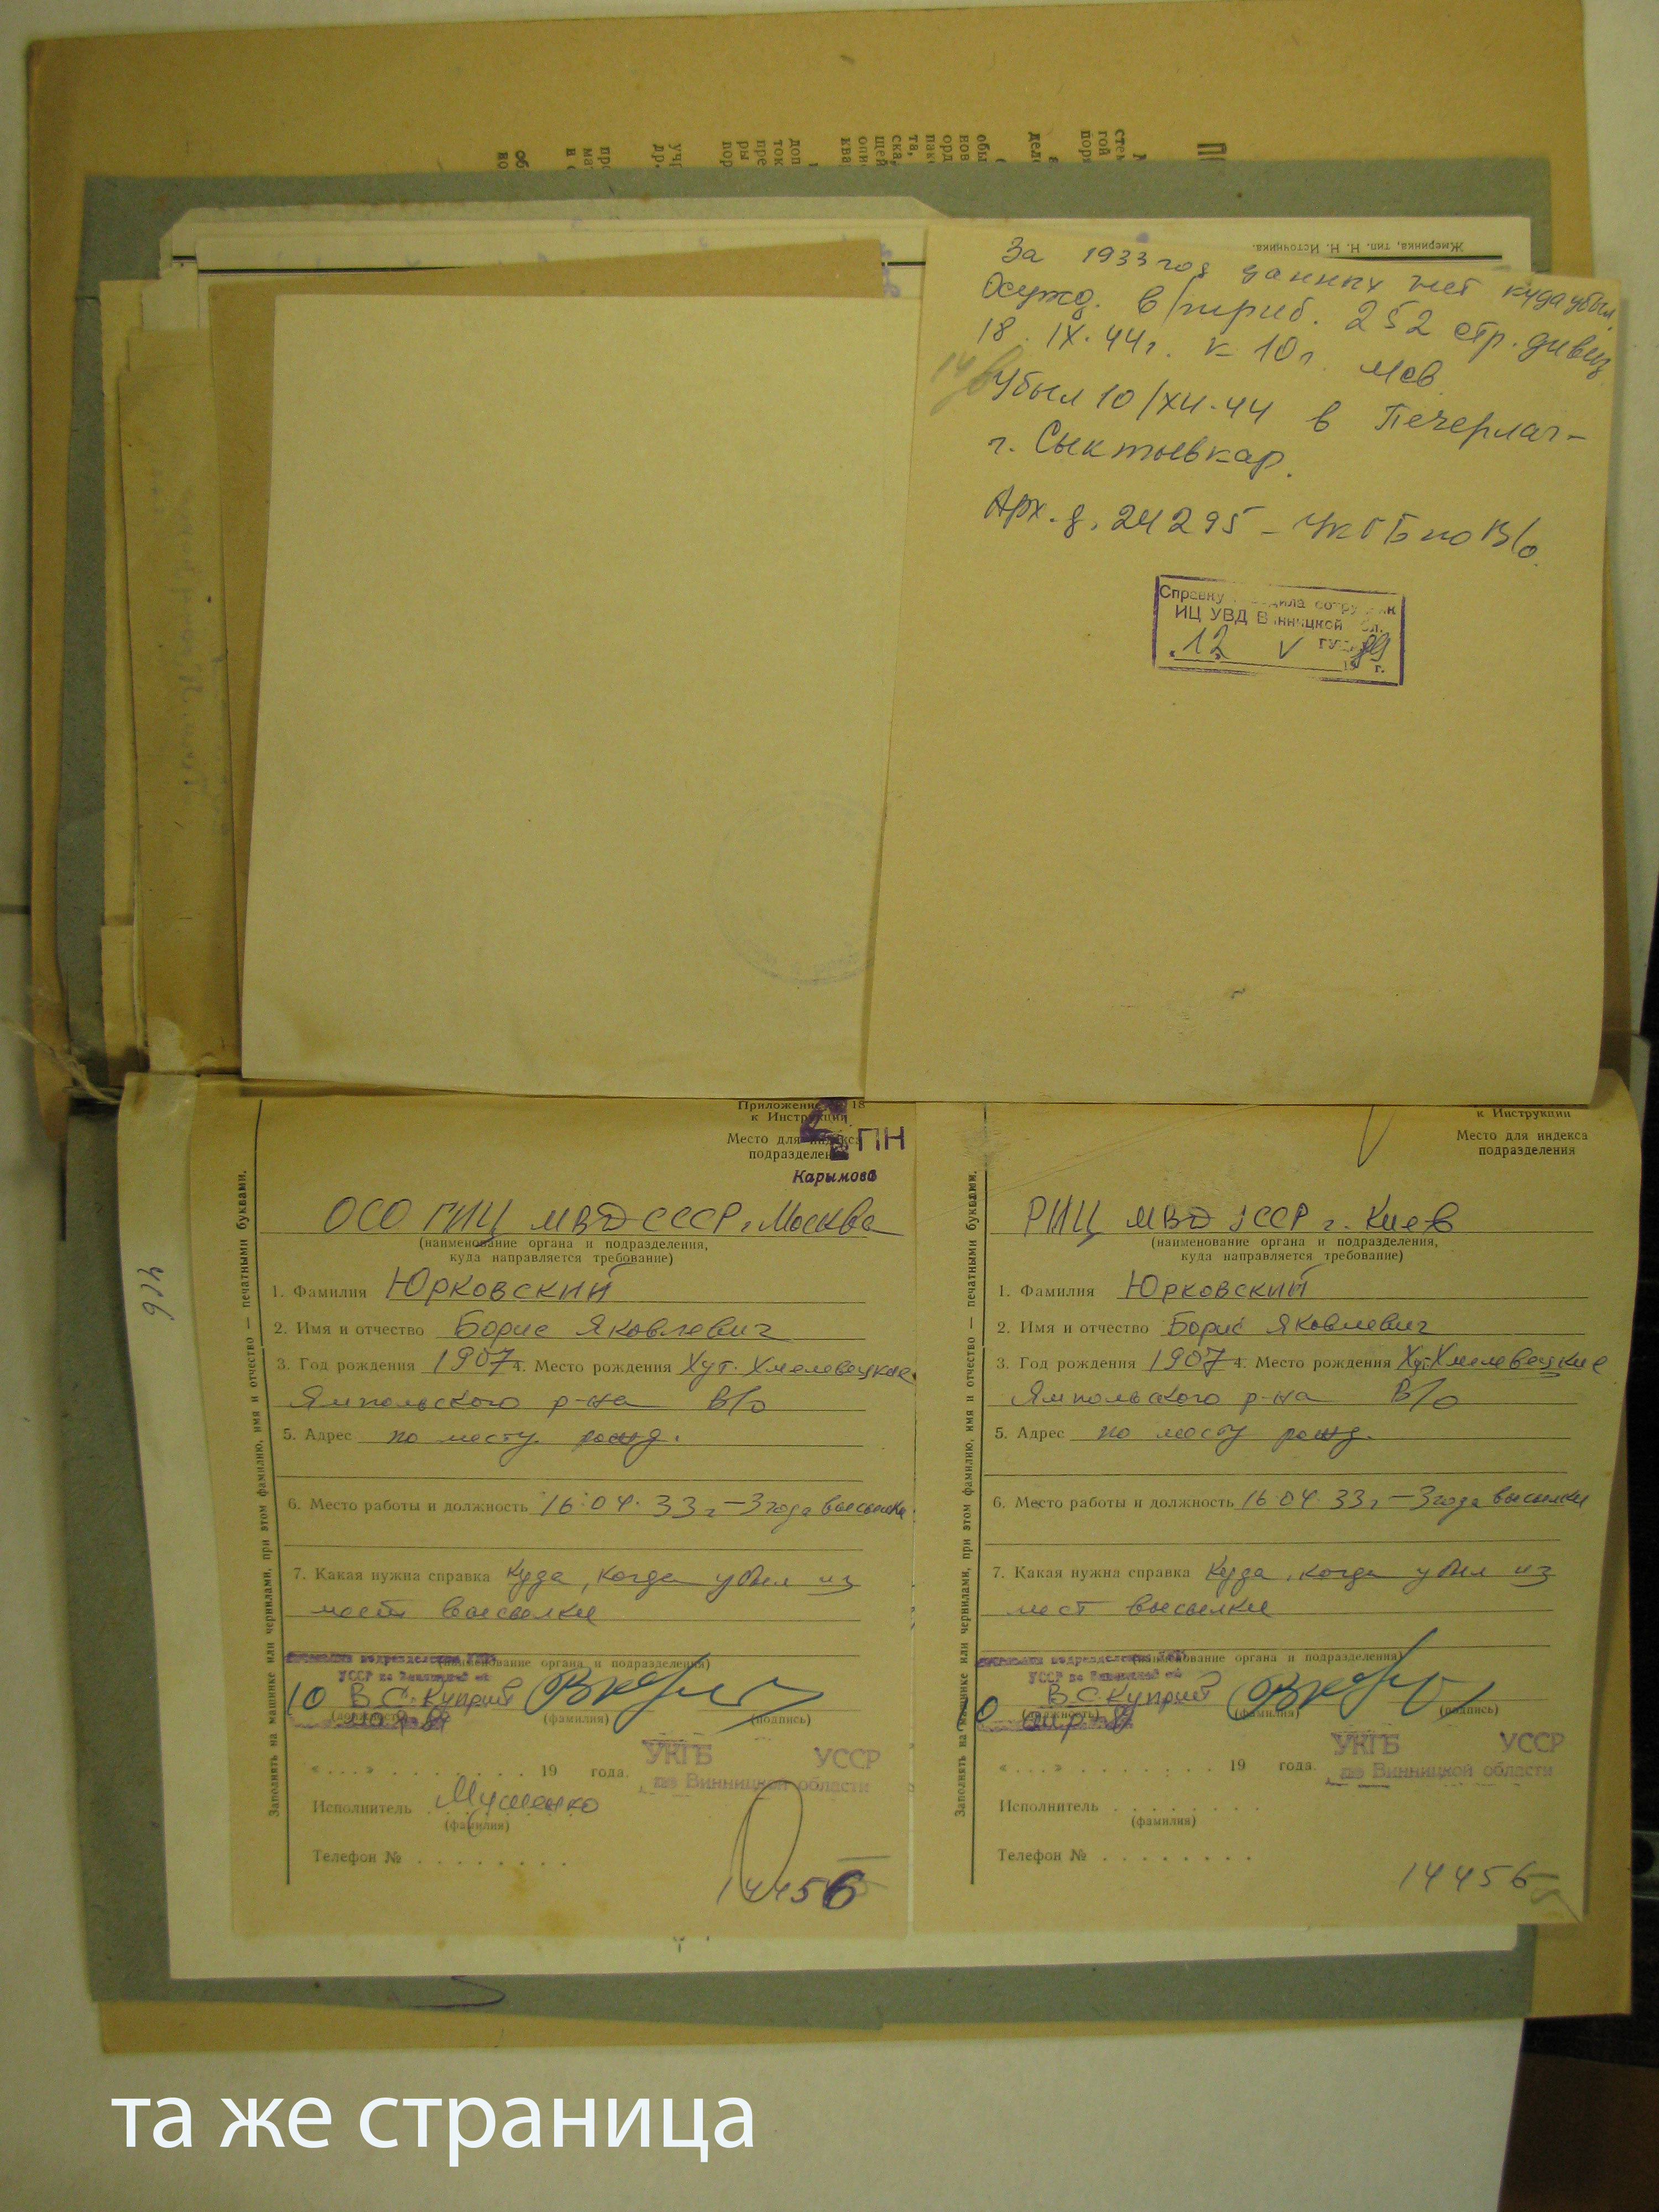 Жмеринка, тип. Н. Н. Источника.
За 1933 год данных нет куда убыл.
Осужд. в/триб. 252 стр. дивиз
18.IX.44г. к 10г.
Убыл 10/XII-44 в Печерлаг-
г. Сыктывкар.
Арх. д. 24295 - УКГБ по В/о
Справку
ИЦ УВД Винницкой
12 V 89
19 г.
Приложение 18
к Инструкции
Место для индекса
подразделения
ПН
Карымова
ОСО ГИЦ МВД СССР г. Москва
(наименование органа и подразделения,
куда направляется требование)
1. Фамилия Юрковский
2. Имя и отчество Борис Яковлевич
3. Год рождения 1907 4. Место рождения Хут. Хмелевецкие
Ямпольского р-на В/о
5. Адрес по месту рожд.
6. Место работы и должность 16.04.33г – 3 года высылки
7. Какая нужна справка Куда, когда убыл из
мест высылки
(наименование органа и подразделения)
УССР по Винницкой
10 В.С. Куприй
(должность) (фамилия) (подпись)
УКГБ УССР
по Винницкой области
«....» . . . . . . . . 19 года.
Исполнитель Мушенко
(фамилия)
Телефон № . . . . . . . .
14456
Заполнять на машинке или чернилами, при этом фамилию, имя и отчество — печатными буквами.
к Инструкции
Место для индекса
подразделения
РИЦ МВД УССР г. Киев
(наименование органа и подразделения,
куда направляется требование)
1. Фамилия Юрковский
2. Имя и отчество Борис Яковлевич
3. Год рождения 1907 4. Место рождения Хут. Хмелевецкие
Ямпольского р-на В/о
5. Адрес по месту рожд.
6. Место работы и должность 16.04.33г – 3 года высылки
7. Какая нужна справка Куда, когда убыл из
мест высылки
(наименование органа и подразделения)
УССР по Винницкой
В.С. Куприй
(должность) (фамилия) (подпись)
УКГБ УССР
по Винницкой области
«....» . . . . . . . . 19 года.
Исполнитель . . . . . . . .
(фамилия)
Телефон № . . . . . . . .
14456
Заполнять на машинке или чернилами, при этом фамилию, имя и отчество — печатными буквами.
та же страница